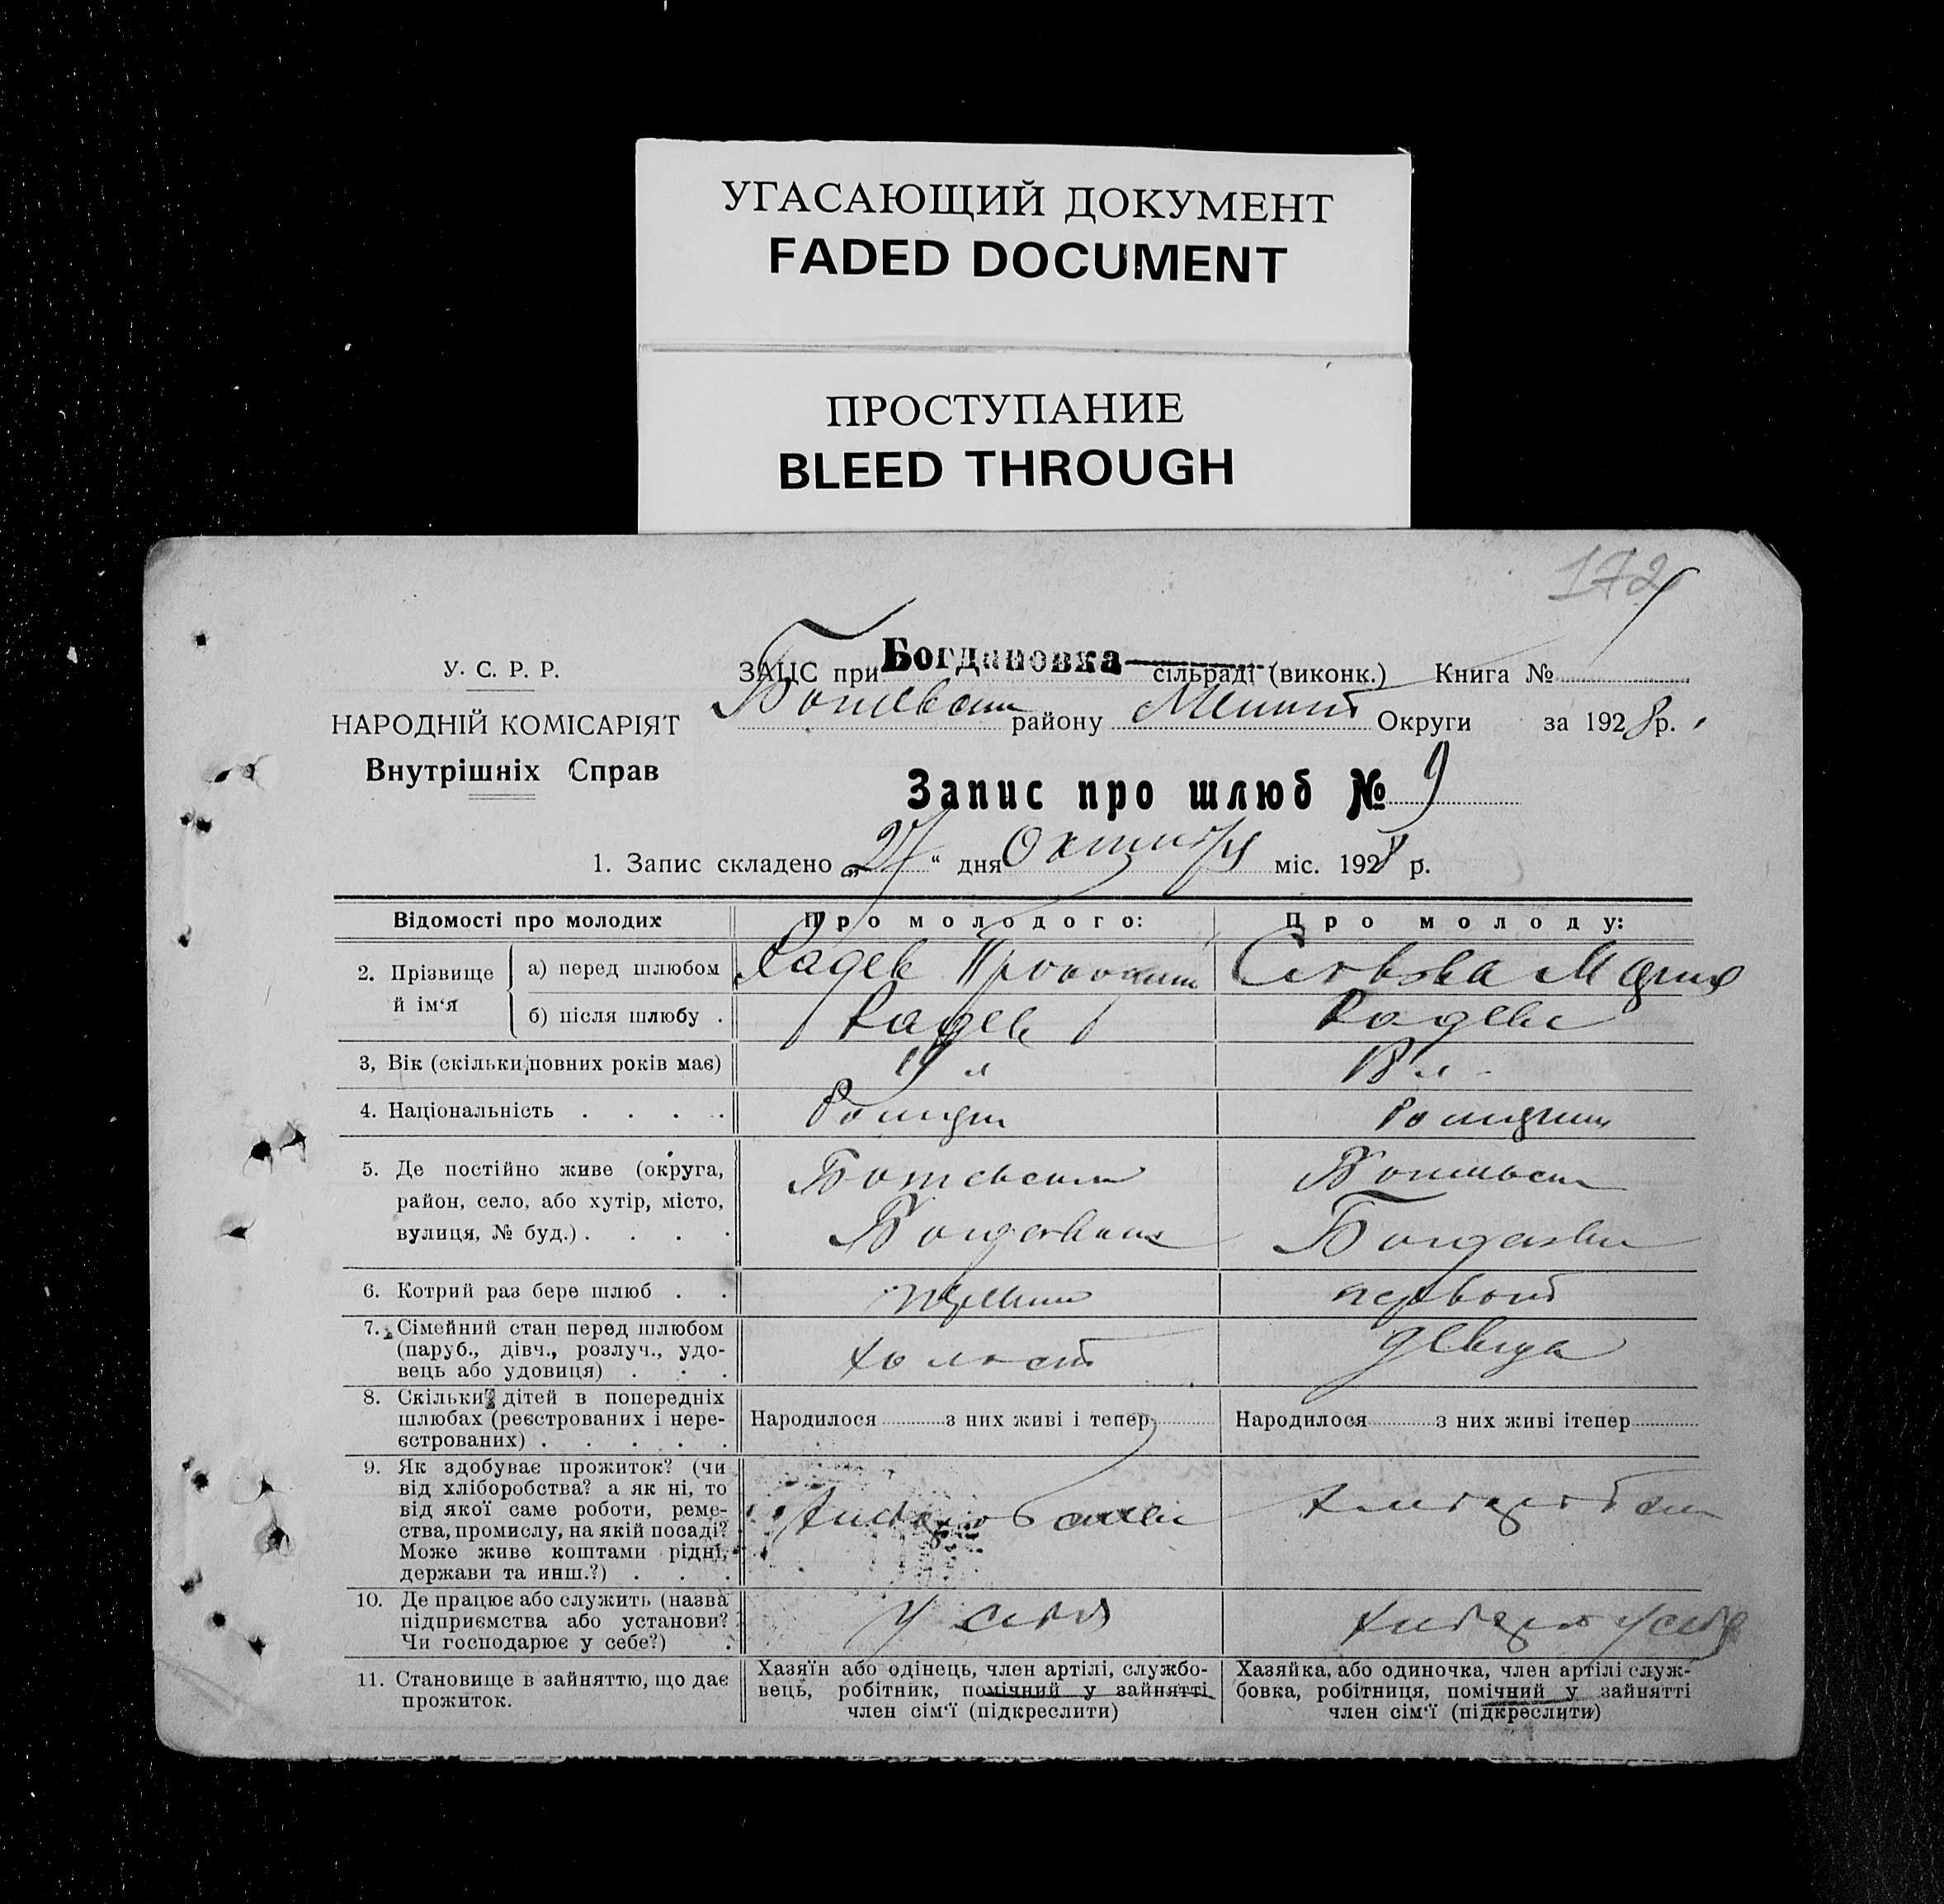 УГАСАЮЩИЙ ДОКУМЕНТ
FADED DOCUMENT
ПРОСТУПАНИЕ
BLEED THROUGH
172
У. С. Р. Р.
НАРОДНІЙ КОМІСАРІЯТ
Внутрішніх Справ
ЗАЦС при Богдановка сільраді (виконк.) Книга №
району Округи за 1928 р.
Запис про шлюб № 9
1. Запис складено „27“ дня Октября міс. 1928 р.
Відомості про молодих Про молодого: Про молоду:
2. Прізвище й ім‘я а) перед шлюбом Радев Мария
б) після шлюбу . Радев Радева
3, Вік (скільки повних років має) 19 л 18 л
4. Національність . . . .
5. Де постійно живе (округа,
район, село, або хутір, місто,
вулиця, № буд.) . . . .
6. Котрий раз бере шлюб . . первый первой
7. Сімейний стан перед шлюбом
(паруб., дівч., розлуч., удо-
вець або удовиця) . . . холост девица
8. Скільки дітей в попередніх
шлюбах (реєстрованих і нере-
єстрованих) . . . . .
Народилося з них живі і тепер Народилося з них живі ітепер
9. Як здобуває прожиток? (чи
від хліборобства? а як ні, то
від якої саме роботи, реме-
ства, промислу, на якій посаді?
Може живе коштами рідні,
держави та инш.?) . . .
10. Де працює або служить (назва
підприємства або установи?
Чи господарює у себе?) . у себя у себя
11. Становище в зайняттю, що дає
прожиток.
Хазяїн або одінець, член артілі, службо-
вець, робітник, помічний у зайнятті
член сім‘ї (підкреслити)
Хазяйка, або одиночка, член артілі служ-
бовка, робітниця, помічний у зайнятті
член сім‘ї (підкреслити)